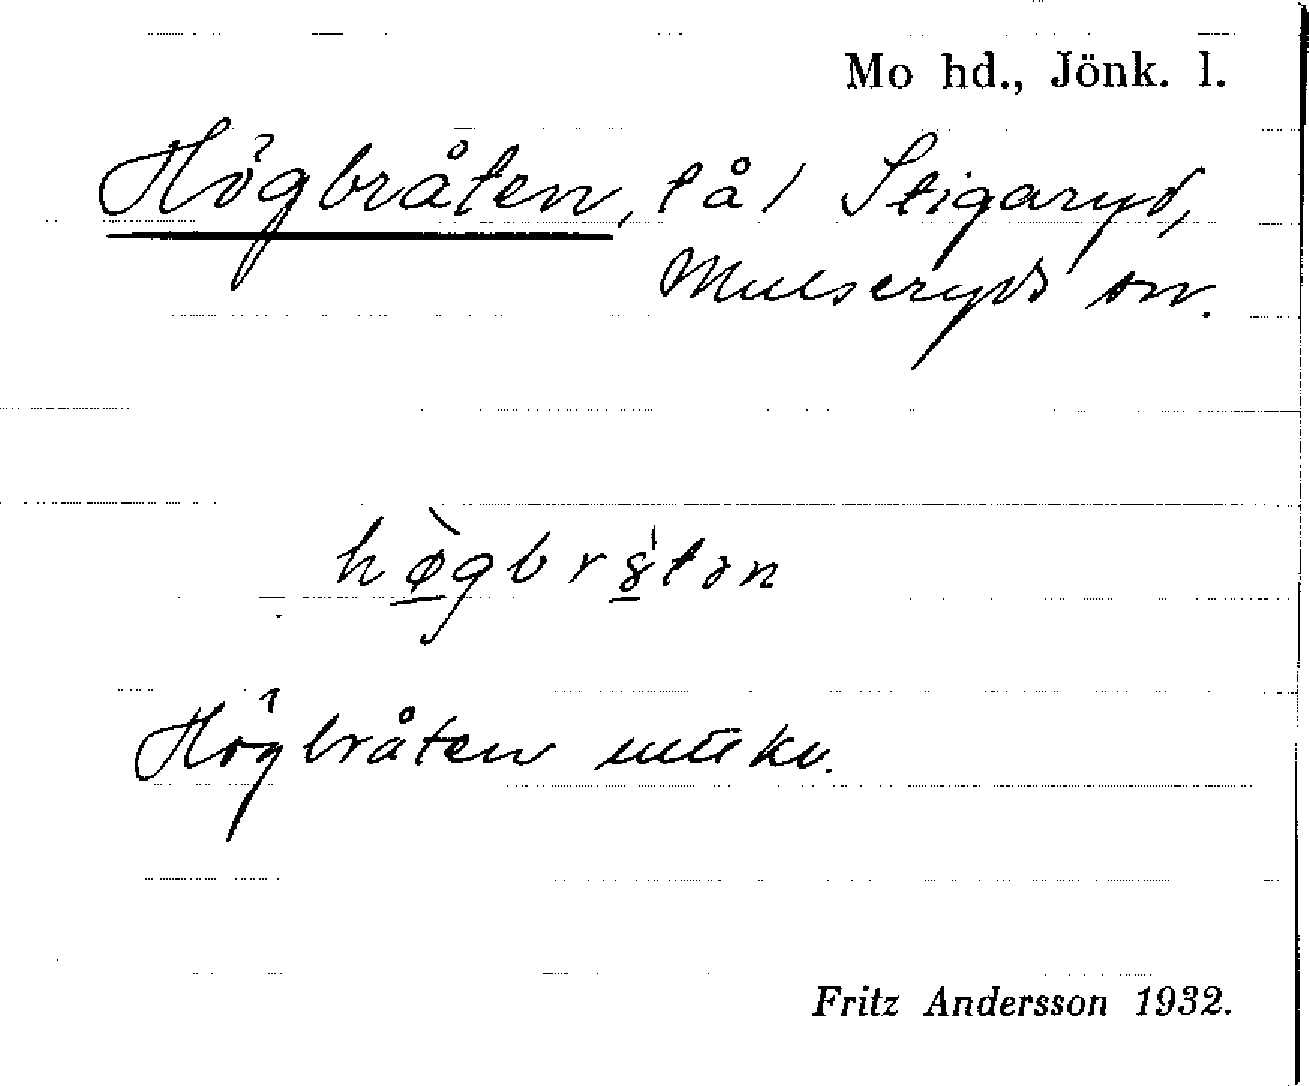 Mo hd., Jönk. l.
Högbråten, l å / Stigaryd,
Mulseryds sn.
hø̀gbr8̍tən
Högbråten
Fritz Andersson 1932.